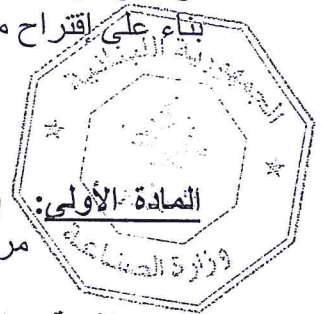 بناء على إقتراح م
الجمهورية اللبنانية
المادة الأولى:
مر
وزارة الصناعة